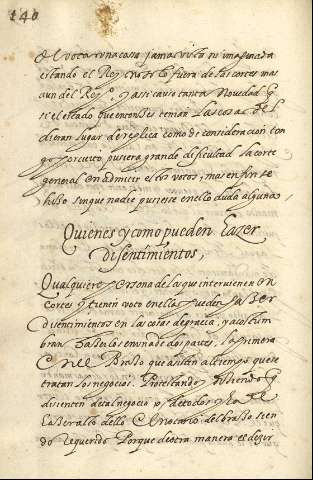 140
del votar una cosa jamas vista ni imaginada
estando el Rey en ellos lo fuera de las cortes mas
aun del Reyº. y assi causo tanta novedad q
si el estado que entonsses tenian las cosas del
dieran lugar de replica como de consideracion ten
go por cierto pusiera grande dificultad la corte
general en admitir estos votos, mas en fin se
hisso sin que nadie pusiesse en ello duda alguna.
Quienes y como pueden hazer
disentimientos,
Qualquiere persona de las que intervienen en
cortes y tienen voto en ellas pueden hazer
disentimientos en las cosas de gracia, y acostum
bran hazerlos en una de dos partes, la primera
en el Brasso que assisten al tiempo que se
tratan los negocios. Protestando, y disiendo q
disienten de tal negocio o de todos, y ha de
hazer acto dello el Notario del brasso sien
do requerido Porque de otra manera el dezir